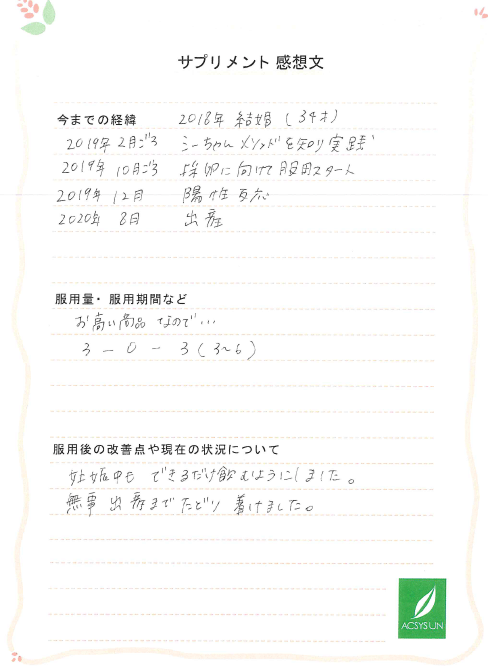 サプリメント 感想文
今までの経緯 2018年 結婚 (34才)
2019年 2月ごろ ミーちゃんメソッドを知り実践
2019年 10月ごろ 採卵に向けて服用スタート
2019年 12月 陽性反応
2020年 8月 出産
服用量・服用期間など
お高い商品 なので…
3 - 0 - 3 (3~6)
服用後の改善点や現在の状況について
妊娠中も できるだけ飲むようにしました。
無事 出産まで たどり 着けました。
ACSYSUN